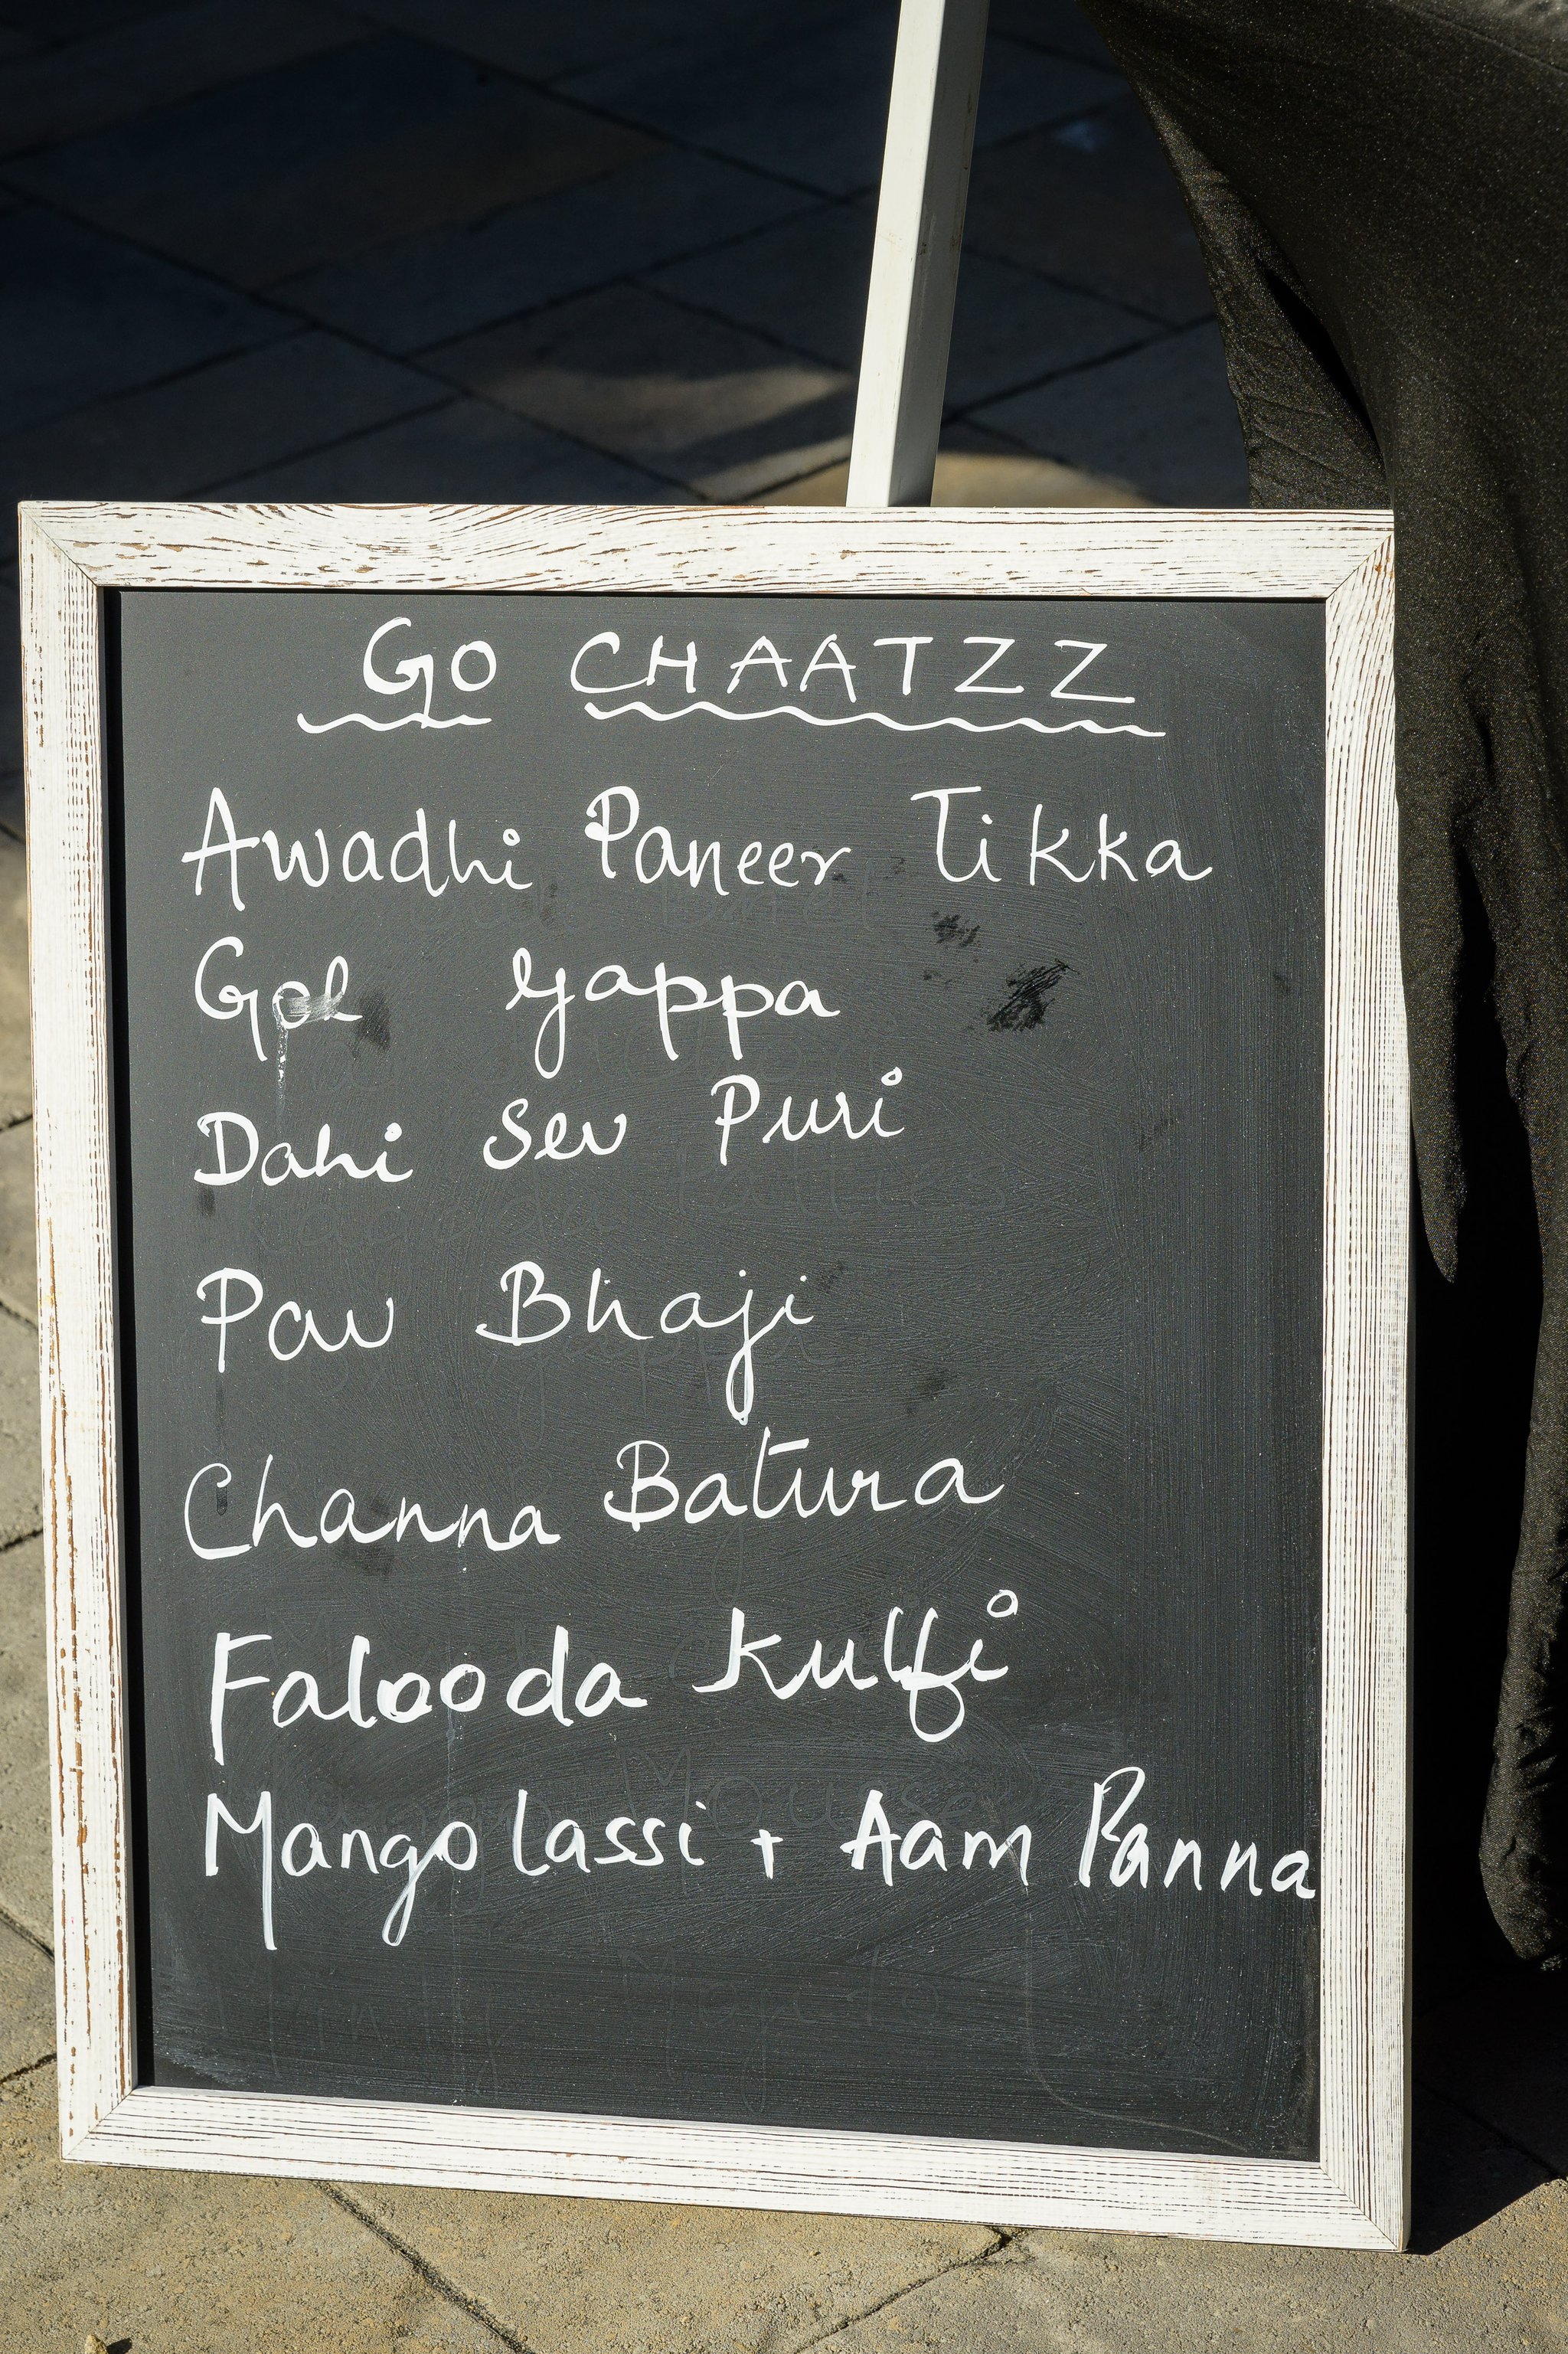 GO CHAATZZ
Awadhi Paneer Tikka
Gol gappa
Dahi Sev Puri
Pav Bhaji
Channa Batura
Falooda Kulfi
Mango lassi + Aam Panna